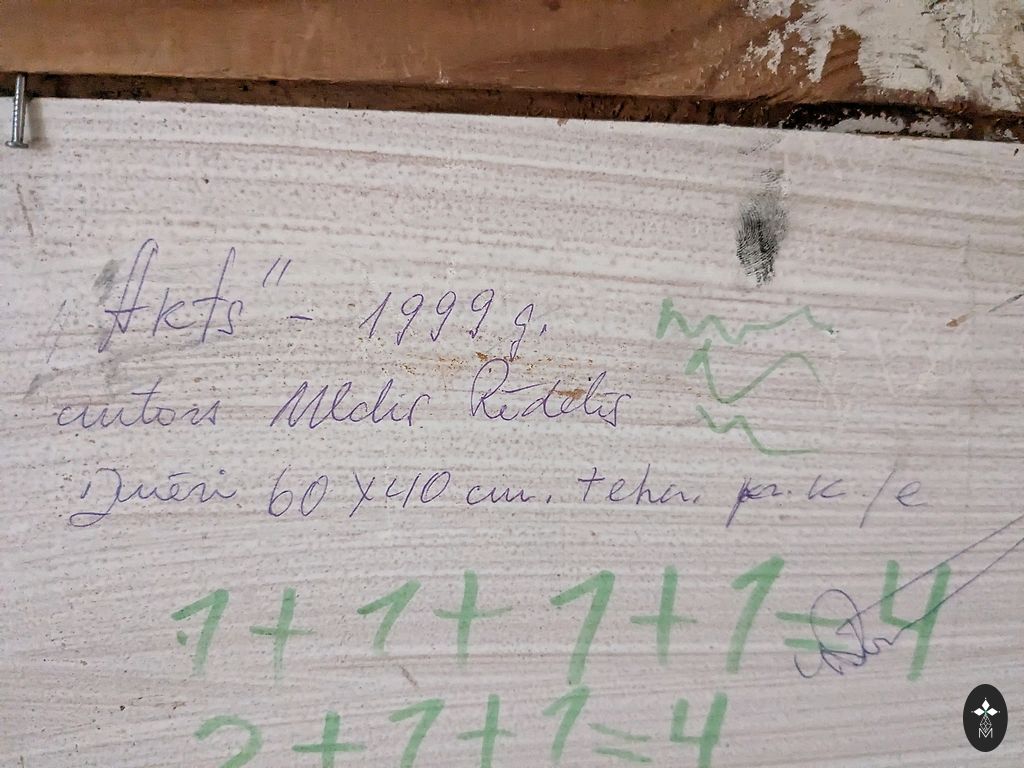 "Akts" - 1999 g.
autors Uldis Rēdelis
Izmēri 60 x 40 cm. tehn. k. /e
1 + 1 + 1 + 1 = 4
2 + 1 + 1 = 4
M